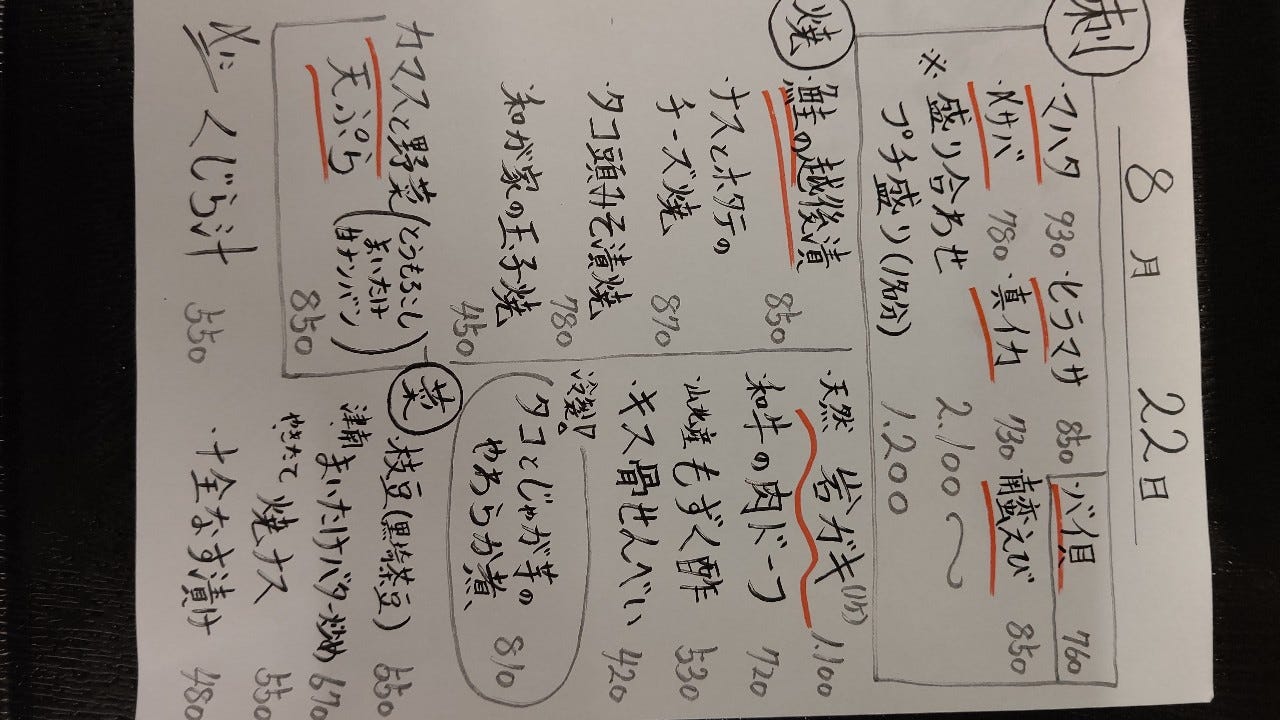 8月 22日
刺
・マハタ 930 ・ヒラマサ 850 バイ貝 760
・〆サバ 780 ・真イカ 730 南蛮えび 850
※ 盛り合わせ 2.100〜
プチ盛り(1名分) 1.200
焼
・鮭の越後漬 850
ナスとホタテの
チーズ焼 870
タコ頭みそ漬焼 780
和が家の玉子焼 450
カマスと野菜(とうもろこし
まいたけ
甘ナンバン)
天ぷら 850
〆に くじら汁 550
・天然 岩ガキ(1ケ) 1.100
・和牛の肉ドーフ 720
・山北産もずく酢 530
・キス骨せんべい 420
冷製
タコとじゃが芋の
やわらか煮 810
菜
枝豆(黒埼茶豆) 550
津南まいたけバター炒め 670
やきたて 焼ナス 550
・十全なす漬け 480